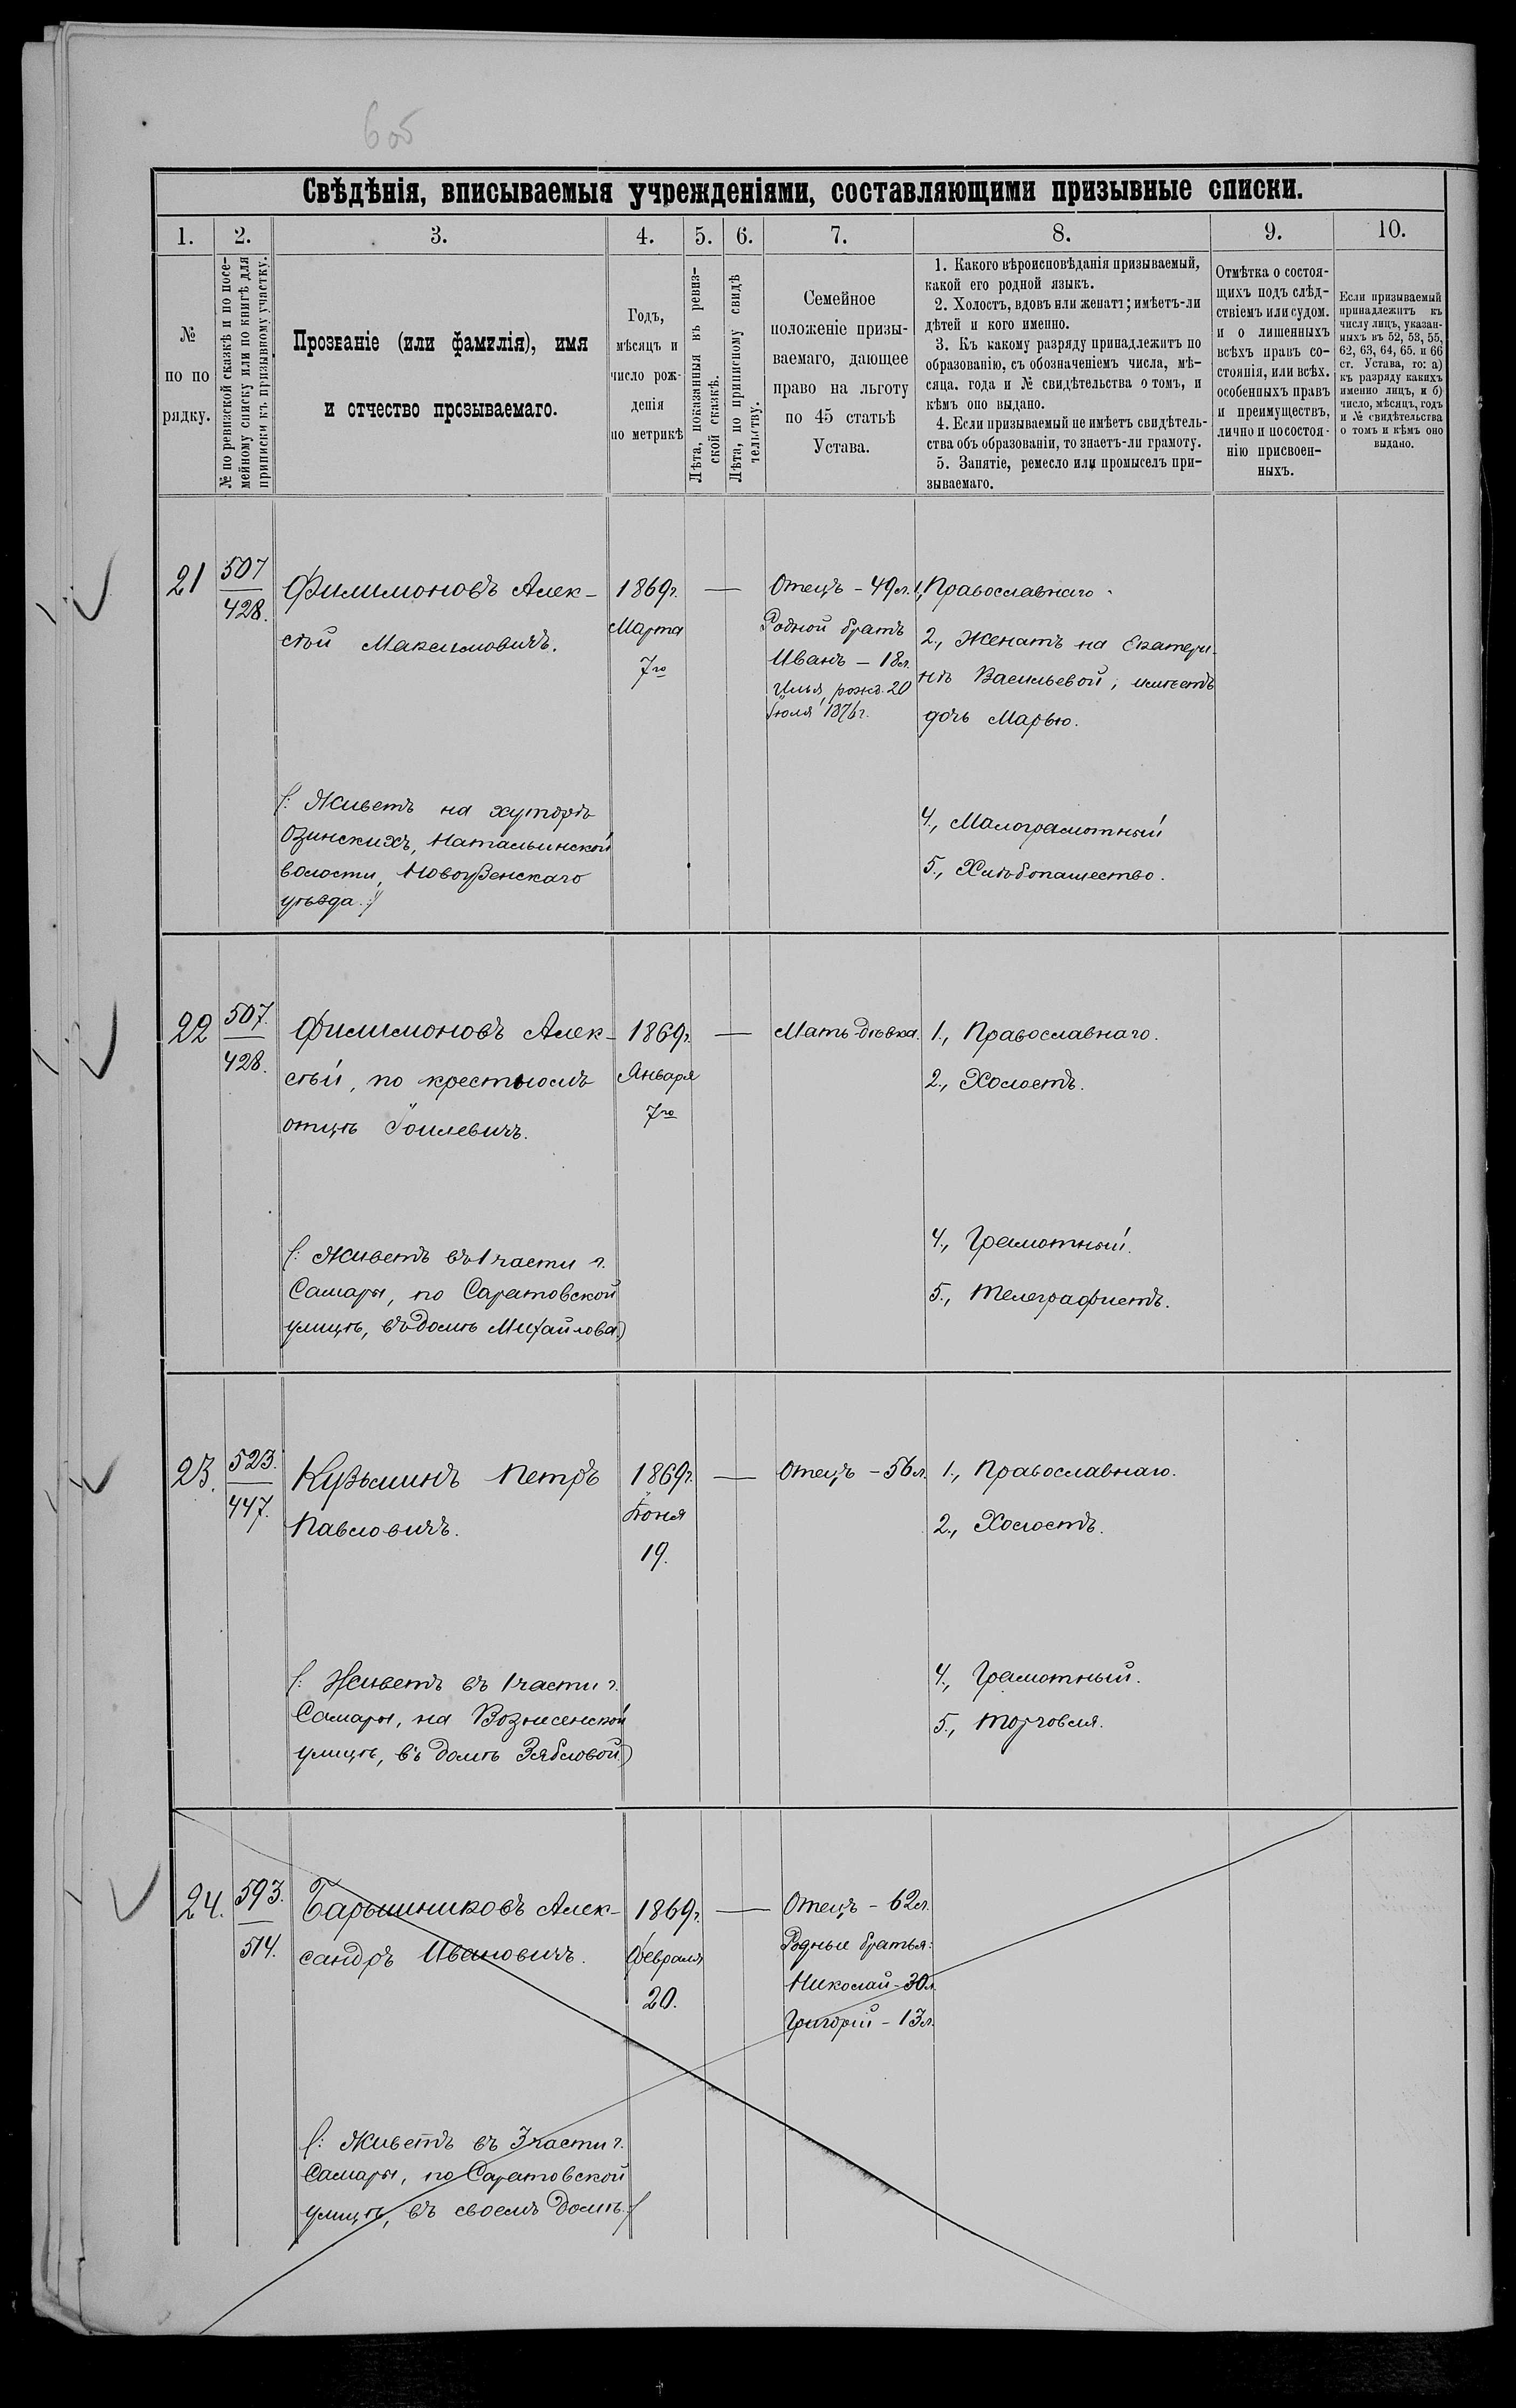 6об
Свѣдѣнія, вписываемыя учрежденіями, составляющими призывные списки.
1. 2. 3. 4. 5. 6. 7. 8. 9. 10.
№
по по
рядку.
№ по ревизской сказкѣ и по посе-
мейному списку или по книгѣ для
приписки къ призывному участку.
Прозваніе (или фамилія), имя
и отчество прозываемаго.
Годъ,
мѣсяцъ и
число рож-
денія
по метрикѣ
Лѣта, показанныя въ ревиз-
ской сказкѣ.
Лѣта, по приписному свидѣ
тельству.
Семейное
положеніе призы-
ваемаго, дающее
право на льготу
по 45 статьѣ
Устава.
1. Какого вѣроисповѣданія призываемый,
какой его родной языкъ.
2. Холостъ, вдовъ или женатъ; имѣетъ-ли
дѣтей и кого именно.
3. Къ какому разряду принадлежитъ по
образованію, съ обозначеніемъ числа, мѣ-
сяца. года и № свидѣтельства о томъ, и
кѣмъ оно выдано.
4. Если призываемый не имѣетъ свидѣтель-
ства объ образованіи, то знаетъ-ли грамоту.
5. Занятіе, ремесло или промыселъ при-
зываемаго.
Отмѣтка о состоя-
щихъ подъ слѣд-
ствіемъ или судом.
и о лишенныхъ
всѣхъ правъ со-
стоянія, или всѣх.
особенныхъ правъ
и преимуществъ,
лично и по состоя-
нію присвоен-
ныхъ.
Если призываемый
принадлежитъ къ
числу лицъ, указан-
ныхъ въ 52, 53, 55,
62, 63, 64, 65. и 66
ст. Устава, то: а)
къ разряду какихъ
именно лицъ, и б)
число, мѣсяцъ, годъ
и № свидѣтельства
о томъ и кѣмъ оно
выдано.
21
507
428.
Филимоновъ Алек-
сѣй Максимовичъ.
1869г.
Марта
7го
—
Отецъ - 49л.
Родной братъ
Иванъ - 18л.
Илья, рожд. 20
Іюля 1876г.
1, Православнаго.
2., Женатъ на Екатери-
нѣ Васильевой, имѣетъ
дочь Марью.
/: Живетъ на хуторѣ
Озинскихъ, Натальинской
волости, Новоузенскаго
уѣзда.:/
4., Малограмотный
5., Хлѣбопашество.
22
507.
428.
Филимоновъ Алек-
сѣй, по крестномъ
отцѣ Іоилевичъ.
1869г.
Января
7го
—
Мать-дѣвка.
1., Православнаго.
2., Холостъ.
/: Живетъ въ 1 части г.
Самары, по Саратовской
улицѣ, въ домѣ Михайлова.)
4., Грамотный.
5., Телеграфистъ.
23.
523.
447.
Кузьминъ Петръ
Павловичъ.
1869г.
Іюня
19.
—
Отецъ - 56л.
1., Православнаго.
2., Холостъ.
/: Живетъ въ 1 части г.
Самары, на Вознесенской
улицѣ, въ домѣ Зябловой.)
4., Грамотный.
5., Торговля.
24.
593.
514.
Барышниковъ Алек-
сандръ Ивановичъ.
1869г.
Февраля
20.
—
Отецъ - 62л.
Родные братья:
Николай - 30л.
Григорій - 13л.
/: Живетъ въ 3 части г.
Самары, по Саратовской
улицѣ, въ своемъ домѣ.:/